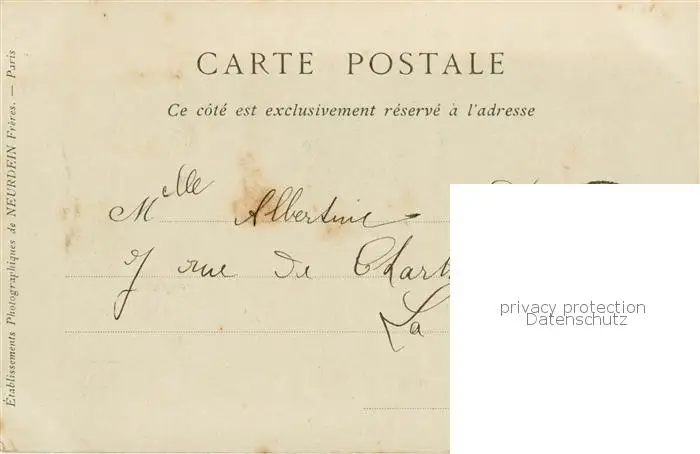 CARTE POSTALE
Ce côté est exclusivement réservé à l'adresse
Mlle Albertine
7 rue de Chart
La
privacy protection
Datenschutz
Établissements Photographiques de NEURDEIN Frères. — Paris